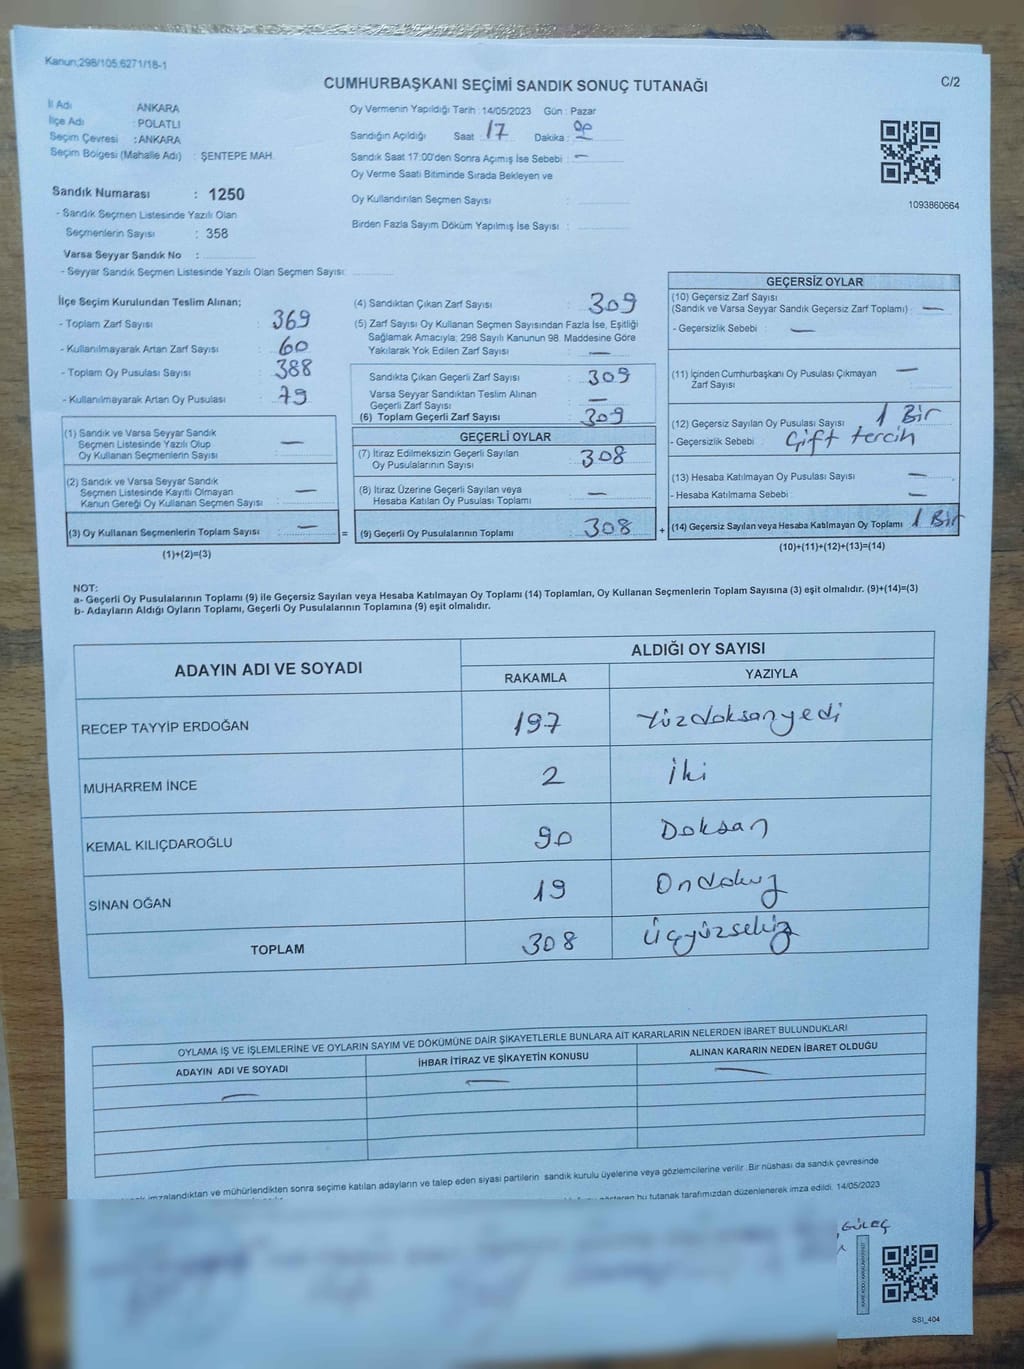 Kanun;298/105,6271/18-1
CUMHURBAŞKANI SEÇİMİ SANDIK SONUÇ TUTANAĞI
C/2
İl Adı : ANKARA
İlçe Adı : POLATLI
Seçim Çevresi : ANKARA
Seçim Bölgesi (Mahalle Adı) : ŞENTEPE MAH.
Oy Vermenin Yapıldığı Tarih : 14/05/2023 Gün : Pazar
Sandığın Açıldığı Saat : 17 Dakika : 00
Sandık Saat 17:00'den Sonra Açımış İse Sebebi : —
Oy Verme Saati Bitiminde Sırada Bekleyen ve
Oy Kullandırılan Seçmen Sayısı :
Birden Fazla Sayım Döküm Yapılmış İse Sayısı :
1093860664
Sandık Numarası : 1250
- Sandık Seçmen Listesinde Yazılı Olan
Seçmenlerin Sayısı : 358
Varsa Seyyar Sandık No :
- Seyyar Sandık Seçmen Listesinde Yazılı Olan Seçmen Sayısı:
İlçe Seçim Kurulundan Teslim Alınan;
- Toplam Zarf Sayısı : 369
- Kullanılmayarak Artan Zarf Sayısı : 60
- Toplam Oy Pusulası Sayısı : 388
- Kullanılmayarak Artan Oy Pusulası : 79
(1) Sandık ve Varsa Seyyar Sandık
Seçmen Listesinde Yazılı Olup
Oy Kullanan Seçmenlerin Sayısı : —
(2) Sandık ve Varsa Seyyar Sandık
Seçmen Listesinde Kayıtlı Olmayan
Kanun Gereği Oy Kullanan Seçmen Sayısı : —
(3) Oy Kullanan Seçmenlerin Toplam Sayısı : —
(1)+(2)=(3)
(4) Sandıktan Çıkan Zarf Sayısı : 309
(5) Zarf Sayısı Oy Kullanan Seçmen Sayısından Fazla İse, Eşitliği
Sağlamak Amacıyla; 298 Sayılı Kanunun 98. Maddesine Göre
Yakılarak Yok Edilen Zarf Sayısı : —
Sandıkta Çıkan Geçerli Zarf Sayısı : 309
Varsa Seyyar Sandıktan Teslim Alınan
Geçerli Zarf Sayısı : —
(6) Toplam Geçerli Zarf Sayısı : 309
GEÇERLİ OYLAR
(7) İtiraz Edilmeksizin Geçerli Sayılan
Oy Pusulalarının Sayısı : 308
(8) İtiraz Üzerine Geçerli Sayılan veya
Hesaba Katılan Oy Pusulası Toplamı : —
= (9) Geçerli Oy Pusulalarının Toplamı : 308 +
GEÇERSİZ OYLAR
(10) Geçersiz Zarf Sayısı
(Sandık ve Varsa Seyyar Sandık Geçersiz Zarf Toplamı) : —
- Geçersizlik Sebebi : —
(11) İçinden Cumhurbaşkanı Oy Pusulası Çıkmayan
Zarf Sayısı : —
(12) Geçersiz Sayılan Oy Pusulası Sayısı : 1 Bir
- Geçersizlik Sebebi : Çift tercih
(13) Hesaba Katılmayan Oy Pusulası Sayısı : —
- Hesaba Katılmama Sebebi : —
(14) Geçersiz Sayılan veya Hesaba Katılmayan Oy Toplamı : 1 Bir
(10)+(11)+(12)+(13)=(14)
NOT:
a- Geçerli Oy Pusulalarının Toplamı (9) ile Geçersiz Sayılan veya Hesaba Katılmayan Oy Toplamı (14) Toplamları, Oy Kullanan Seçmenlerin Toplam Sayısına (3) eşit olmalıdır. (9)+(14)=(3)
b- Adayların Aldığı Oyların Toplamı, Geçerli Oy Pusulalarının Toplamına (9) eşit olmalıdır.
ADAYIN ADI VE SOYADI
ALDIĞI OY SAYISI
RAKAMLA YAZIYLA
RECEP TAYYİP ERDOĞAN 197 Yüzdoksanyedi
MUHARREM İNCE 2 İki
KEMAL KILIÇDAROĞLU 90 Doksan
SİNAN OĞAN 19 Ondokuz
TOPLAM 308 Üçyüzsekiz
OYLAMA İŞ VE İŞLEMLERİNE VE OYLARIN SAYIM VE DÖKÜMÜNE DAİR ŞİKAYETLERLE BUNLARA AİT KARARLARIN NELERDEN İBARET BULUNDUKLARI
ADAYIN ADI VE SOYADI İHBAR İTİRAZ VE ŞİKAYETİN KONUSU ALINAN KARARIN NEDEN İBARET OLDUĞU
— — —
imzalandıktan ve mühürlendikten sonra seçime katılan adayların ve talep eden siyasi partilerin sandık kurulu üyelerine veya gözlemcilerine verilir. Bir nüshası da sandık çevresinde
gösteren bu tutanak tarafımızdan düzenlenerek imza edildi. 14/05/2023
GÜLEÇ
SSI_404